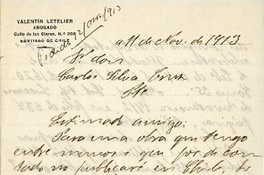 VALENTÍN LETELIER
ABOGADO
Calle de las Claras, N.º 208
SANTIAGO DE CHILE
a 11 de Nov. de 1913.
Sr. don
Carlos Silva Cruz
Pte
Estimado amigo:
Para una obra que tengo
entre manos i que por de con
tado no publicaré en Chile, te